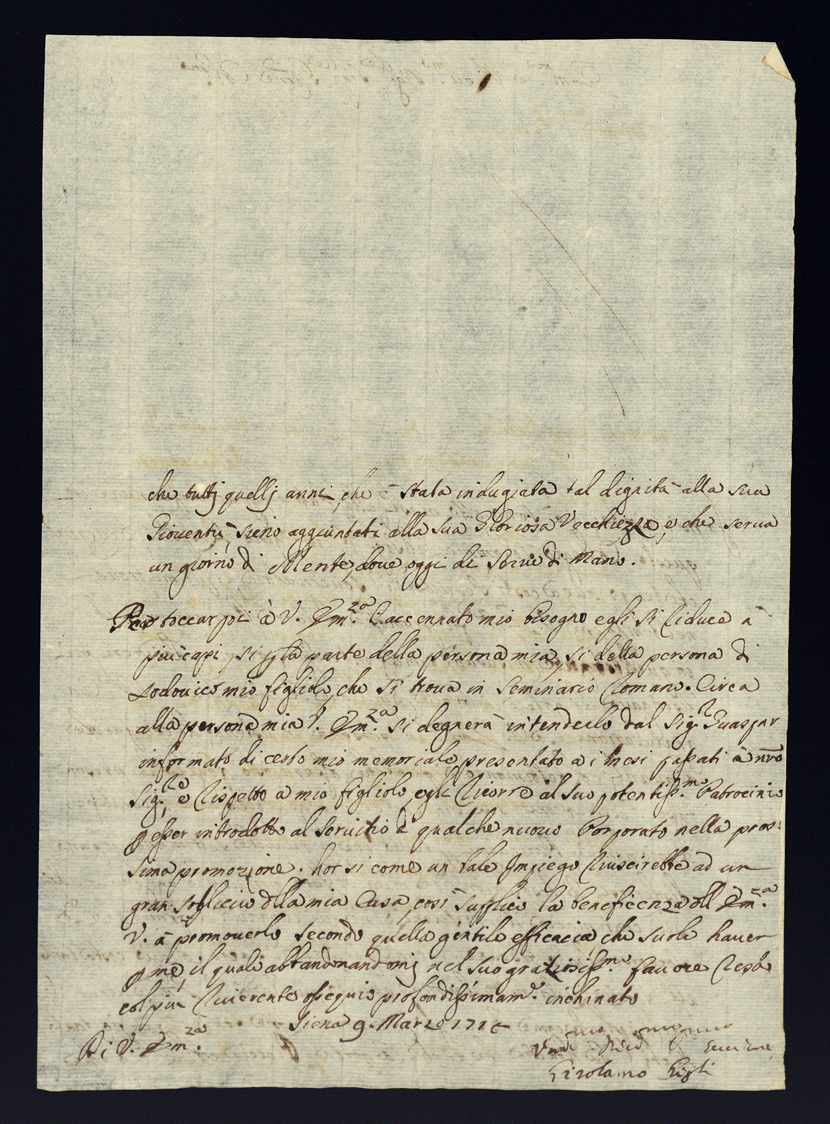 che tuttj quellj anni, che è stata indugiata tal dignità alla sua
Gioventù, sieno aggiuntati alla sua Gloriosa Vecchiezza, e che serva
un giorno di Mente, dove oggi di Serve di Mano.
Per toccar poi à V. Em.za l'accennato mio bisogno egli si riduce à
più capi, si p la parte della persona mia, si della persona di
Lodovico mio figliolo, che si trova in Seminario Romano. Circa
alla persona mia V. Em.za si degnerà intenderlo dal Sig.r Guaspar
informato di certo mio memoriale presentato a i mesi passati à nro
Sig.re, e Rispetto a mio figliolo egli ricorre al suo potentiss.mo Patrocinio
p esser introdotto al Servitio di qualche nuovo Porporato nella pros
sima promozione. hor si come un tale Impiego riuscirebbe ad un
gran sollievo della mia Casa, così supplico la beneficenza dell Em.za
V. à promoverlo secondo quella gentile efficacia che suole haver
p me, il quale abbandonandomj nel suo gratiosiss.mo favore resto
col più riverente ossequio profondissimam.e inchinato
Siena 9. Marzo 171
Di V. Em.za
Girolamo Gigli